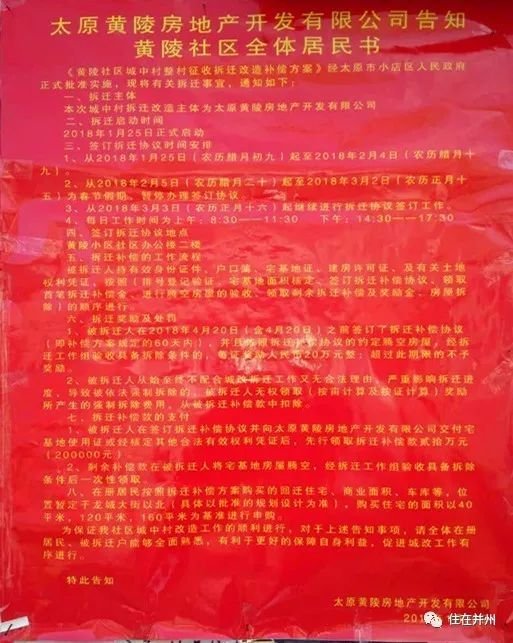 太原黄陵房地产开发有限公司告知
黄陵社区全体居民书
《黄陵社区城中村整村征收拆迁改造补偿方案》经太原市小店区人民政府
正式批准实施,现将有关拆迁事宜,通知如下:
一、拆迁主体
本次城中村拆迁改造主体为太原黄陵房地产开发有限公司
二、拆迁启动时间
2018年1月25日正式启动
三、签订拆迁协议时间安排
1、从2018年1月25日(农历腊月初九)起至2018年2月4日(农历腊月十
九)。
2、从2018年2月5日(农历腊月二十)起至2018年3月2日(农历正月十
五)为春节假期,暂停办理签订协议。
3、从2018年3月3日(农历正月十六)起继续进行拆迁协议签订工作。
4、每日工作时间为上午:8:30——11:30 下午:14:30——17:30
四、签订拆迁协议地点
黄陵小区社区办公楼二楼
五、拆迁补偿的工作流程
被拆迁人持有效身份证件、户口簿、宅基地证、建房许可证、及有关土地
权利凭证,按照(排号登记验证、宅基地面积核定、签订拆迁协议、领取
首笔拆迁补偿金、进行腾空房屋的验收、领取剩余拆迁补偿及奖励金、房屋拆
除)的顺序进行。
六、拆迁奖励及处罚
1、被拆迁人在2018年4月20日(含4月20日)之前签订了拆迁补偿协议
(即补偿方案规定的60天内),并且按照拆迁补偿协议的约定腾空房屋,经拆
迁工作组验收具备拆除条件的,每证奖励人民币20万元整;超过此期限的不予
奖励。
2、被拆迁人从始至终不配合城改拆迁工作又无合法理由,严重影响拆迁进
度,导致被依法强制拆除的,被拆迁人无权领取(按亩计算及按证计算)奖励
所产生的强制拆除费用,从被拆迁补偿款中扣除。
七、拆迁补偿款的支付
1、被拆迁人在签订拆迁补偿协议并向太原黄陵房地产开发有限公司交付宅
基地使用证或经核定其他合法有效权利凭证后,先行领取拆迁补偿款贰拾万元
(200000元)。
2、剩余补偿款在被拆迁人将宅基地房屋腾空,经拆迁工作组验收具备拆除
条件后一次性领取。
八、在册居民按照拆迁补偿方案购买的回迁住宅、商业面积、车库等,位
置暂定于龙城大街以北(具体以批准的规划设计为准),购买住宅的面积以40
平米,120平米,160平米为基准进行申购。
为保证我社区城中村改造工作的顺利进行,对于上述告知事项,请全体在册
居民、被拆迁户能够全面熟悉,有利于更好的保障自身利益,促进城改工作有
序进行。
特此告知
太原黄陵房地产开发有限公司
住在并州